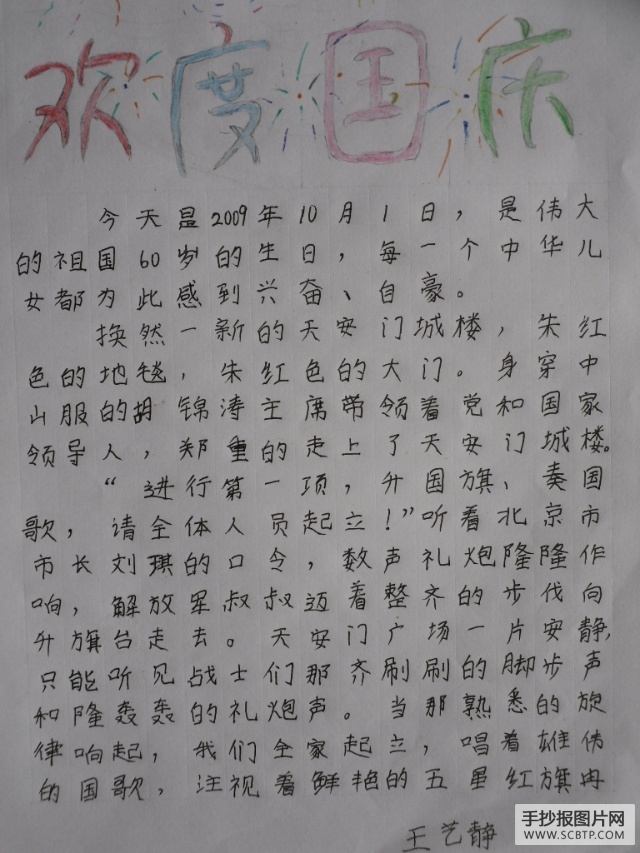 欢度国庆
今天是2009年10月1日，是伟大
的祖国60岁的生日，每一个中华儿
女都为此感到兴奋、自豪。
换然一新的天安门城楼，朱红
色的地毯，朱红色的大门。身穿中
山服的胡锦涛主席带领着党和国家
领导人，郑重的走上了天安门城楼。
“进行第一项，升国旗、奏国
歌，请全体人员起立！”听着北京市
市长刘琪的口令，数声礼炮隆隆作
响，解放军叔叔迈着整齐的步伐向
升旗台走去。天安门广场一片安静，
只能听见战士们那齐刷刷的脚步声
和隆轰轰的礼炮声。当那熟悉的旋
律响起，我们全家起立，唱着雄伟
的国歌，注视着鲜艳的五星红旗冉
王艺静
手抄报图片网
WWW.SCBTP.COM